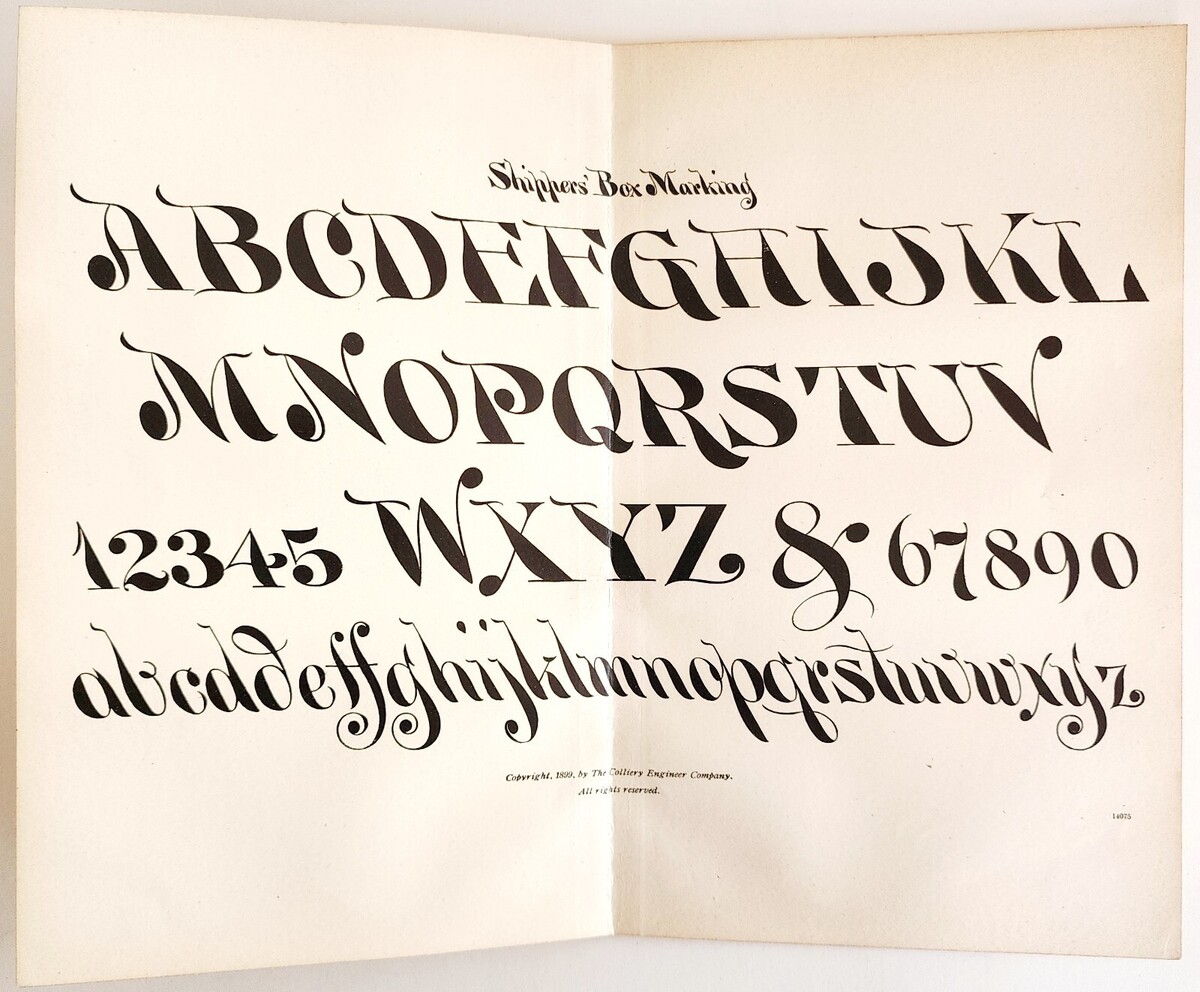 Shippers' Box Marking
ABCDEFGHIJKL
MNOPQRSTUV
12345 WXYZ & 67890
abcddeffghijklmnopqrstuvwxyz
Copyright, 1899, by The Colliery Engineer Company.
All rights reserved.
14075